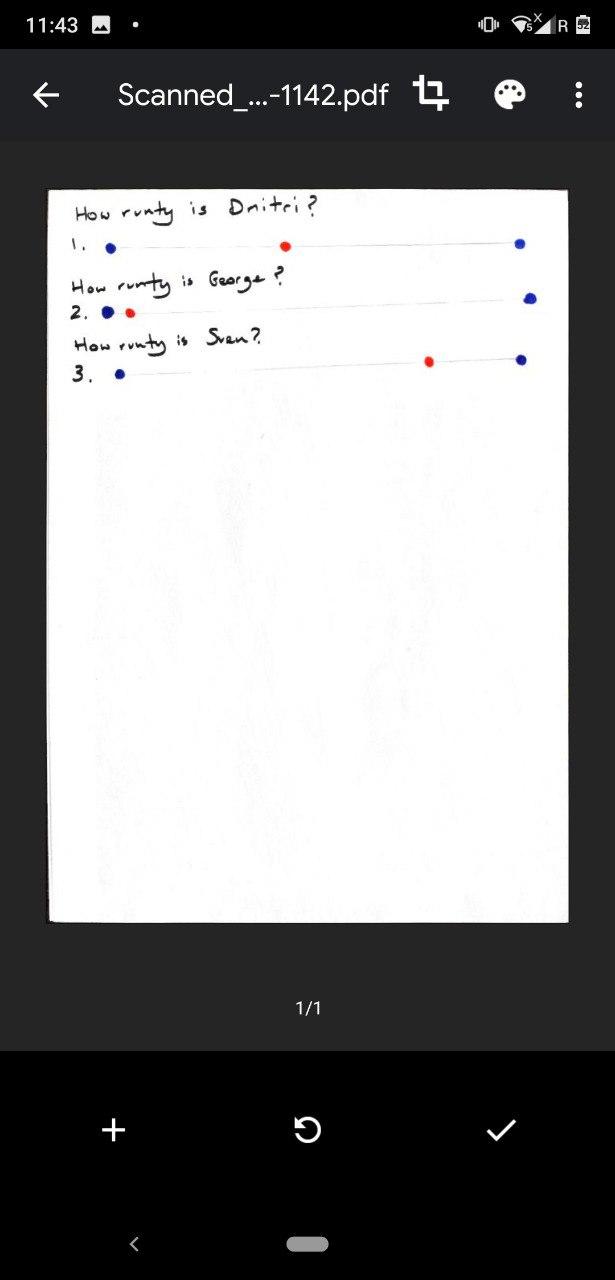 11:43
5
X
R
52
Scanned_...-1142.pdf
How runty is Dmitri?
1.
How runty is George?
2.
How runty is Sven?
3.
1/1